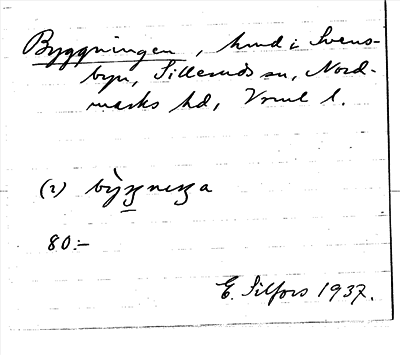 Byggningen, hmd i Svens-
byn, Silleruds sn, Nord-
marks hd, Vrml l.
(2) bỳggnega
80:-
E. Silfors 1937.